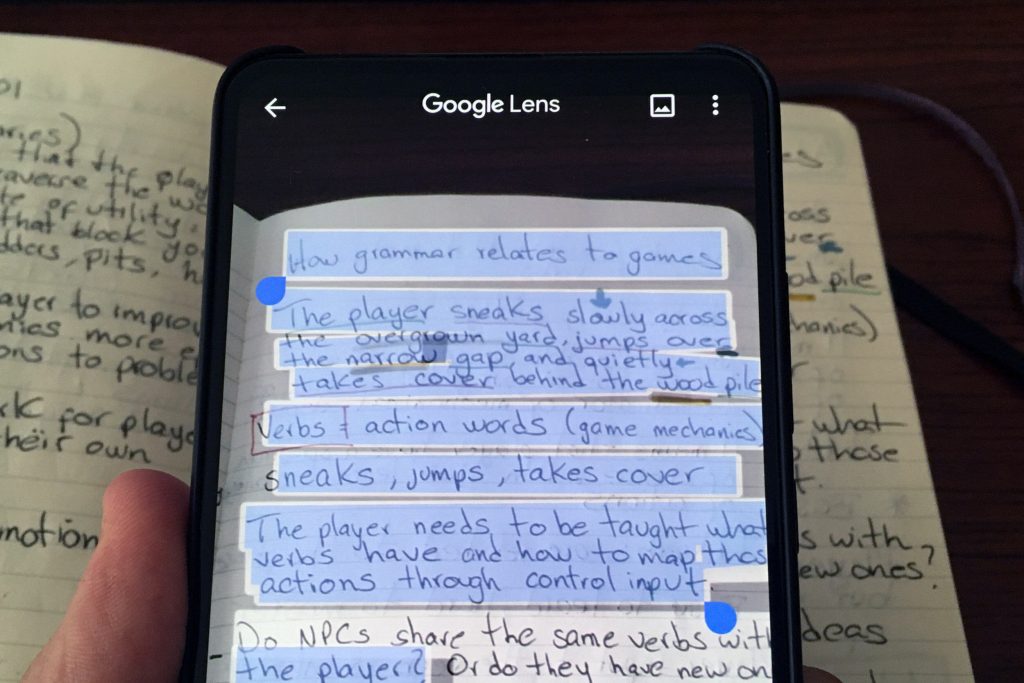 Google Lens
How grammar relates to games
The player sneaks slowly across
the overgrown yard, jumps over
the narrow gap, and quietly
takes cover behind the wood pile
Verbs = action words (game mechanics)
sneaks, jumps, takes cover
The player needs to be taught what
verbs have and how to map thos
actions through control input.
Do NPCs share the same verbs with
the player? Or do they have new on
01
aries)
that the play
averse the wo
te of utility.
that block yo
dders, pits, h
ayer to improv
nics more e
ons to proble
ck for playe
their own
motion
oss
ver
od pile
hanics)
what
those
t.
s with
ew ones?
deas